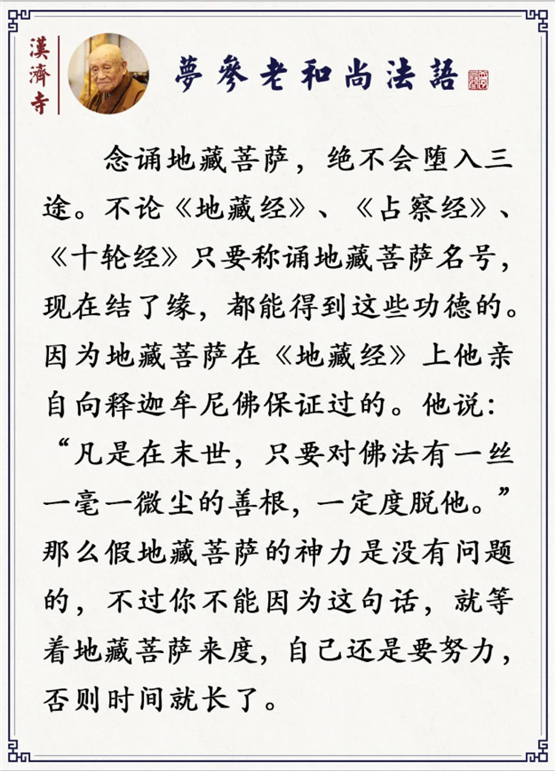 漢濟寺
夢參老和尚法語
念诵地藏菩萨，绝不会堕入三
途。不论《地藏经》、《占察经》、
《十轮经》只要称诵地藏菩萨名号，
现在结了缘，都能得到这些功德的。
因为地藏菩萨在《地藏经》上他亲
自向释迦牟尼佛保证过的。他说：
“凡是在末世，只要对佛法有一丝
一毫一微尘的善根，一定度脱他。”
那么假地藏菩萨的神力是没有问题
的，不过你不能因为这句话，就等
着地藏菩萨来度，自己还是要努力，
否则时间就长了。